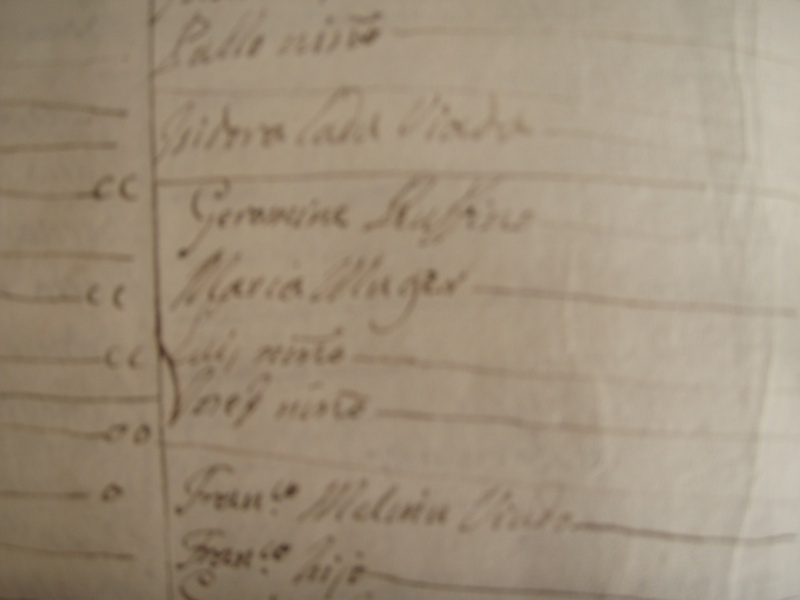 niño
Isidora Viuda
cc Geromina Ruffino
cc Maria Muger
cc Luis niño
Josef niño
oo
o Fran.co Molina Viudo
Fran.co hijo